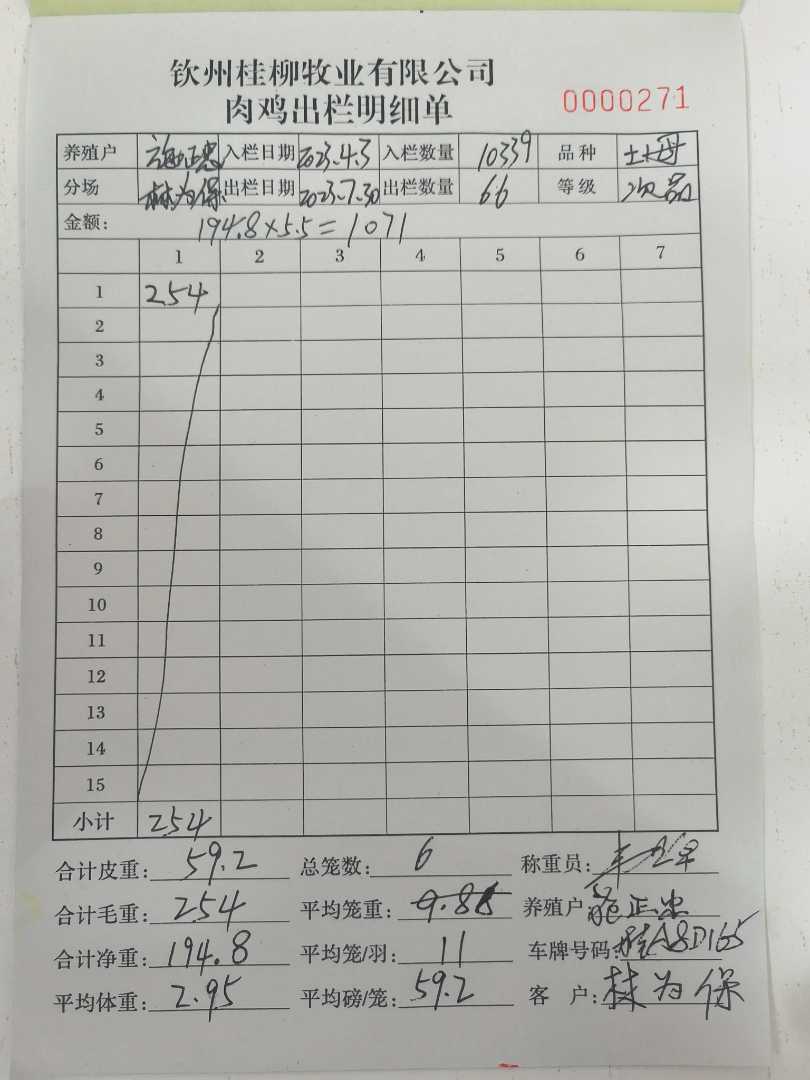 钦州桂柳牧业有限公司
肉鸡出栏明细单 0000271
养殖户 施正忠 入栏日期 2023.4.3 入栏数量 10339 品种 土2母
分场 林为保 出栏日期 2023.7.30 出栏数量 66 等级 次品
金额: 194.8×5.5=1071
1 2 3 4 5 6 7
1 254
2
3
4
5
6
7
8
9
10
11
12
13
14
15
小计 254
合计皮重: 59.2 总笼数: 6 称重员:
合计毛重: 254 平均笼重: 9.88 养殖户: 施正忠
合计净重: 194.8 平均笼/羽: 11 车牌号码: 桂A8D165
平均体重: 2.95 平均磅/笼: 59.2 客 户: 林为保